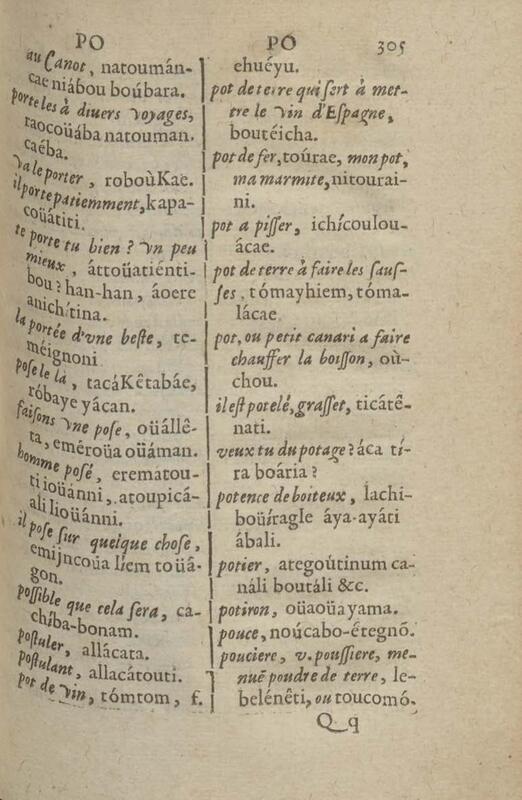 PO
au Canot, natoumán-
cae niábou boúbara.
porte les à diuers voyages,
taocoüába natouman.
caéba.
va le porter, roboùKae.
il porte patiemment, kapa-
coüátiti.
te porte tu bien? vn peu
mieux, áttoüatiénti-
bou? han-han, áoere
anichítina.
la portée d'vne beste, te-
méignoni
pose le là, tacáKêtabáe,
róbaye yácan.
faisons vne pose, oüállê-
ta, emêroüa oüáman.
homme posé, erematou-
ti ioüánni, atoupicá-
ali lioüánni.
il pose sur quelque chose,
emijncoüa líem toüá-
gon.
possible que cela sera, ca-
chíba-bonam.
postuler, allácata.
postulant, allacátouti.
pot de vin, tómtom, f.
PO 305
ehuéyu.
pot de terre qui sert à met-
tre le vin d'Espagne,
boutéicha.
pot de fer, toúrae, mon pot,
ma marmite, nitourai-
ni.
pot a pisser, ichícoulou-
ácae.
pot de terre à faire les saus-
ses, tómayhiem, tóma-
lácae
pot, ou petit canari a faire
chauffer la boisson, où-
chou.
il est potelé, grasset, ticátê-
nati.
veux tu du potage? áca tí-
ra boária?
potence de boiteux, lachi-
boüíragle áya-ayáti
ábali.
potier, ategoútinum ca-
náli boutáli &c.
potiron, oüaoüayama.
pouce, noúcabo-étegnõ.
pouciere, v. poussiere, me-
nuë poudre de terre, le-
belénêti, ou toucomó.
Qq